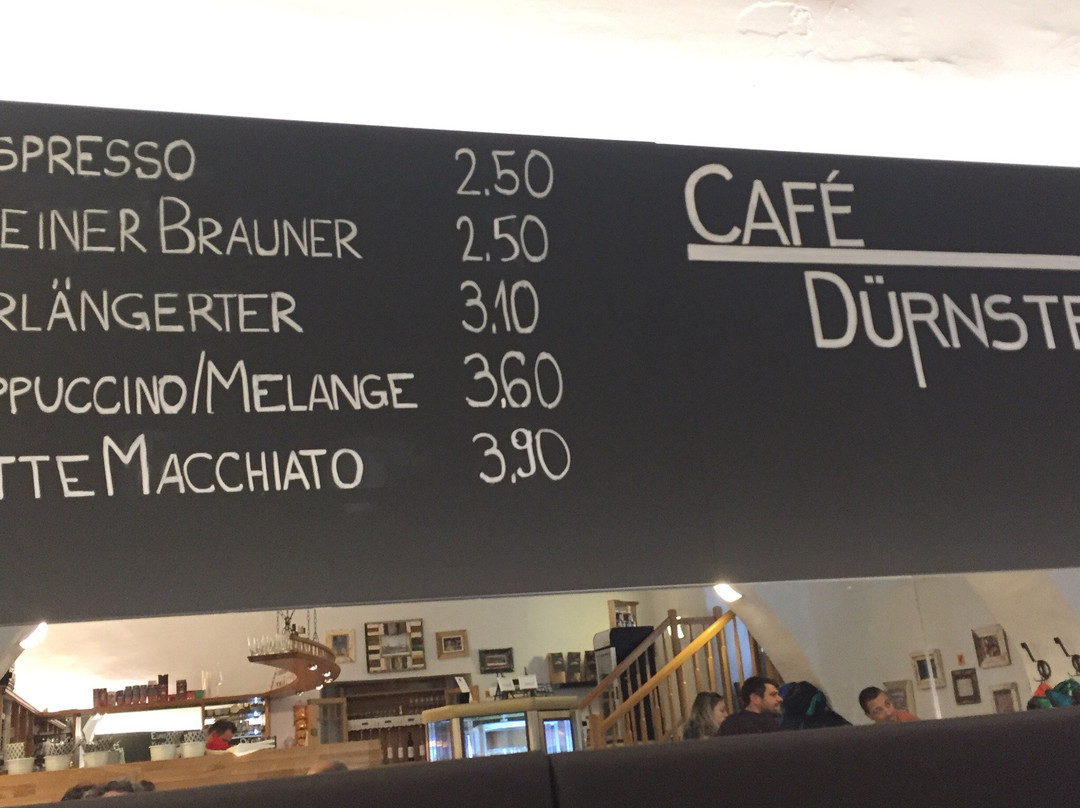 SPRESSO 2.50
EINER BRAUNER 2.50
RLÄNGERTER 3.10
PPUCCINO/MELANGE 3.60
TTE MACCHIATO 3,90
CAFÉ
DÜRNSTE